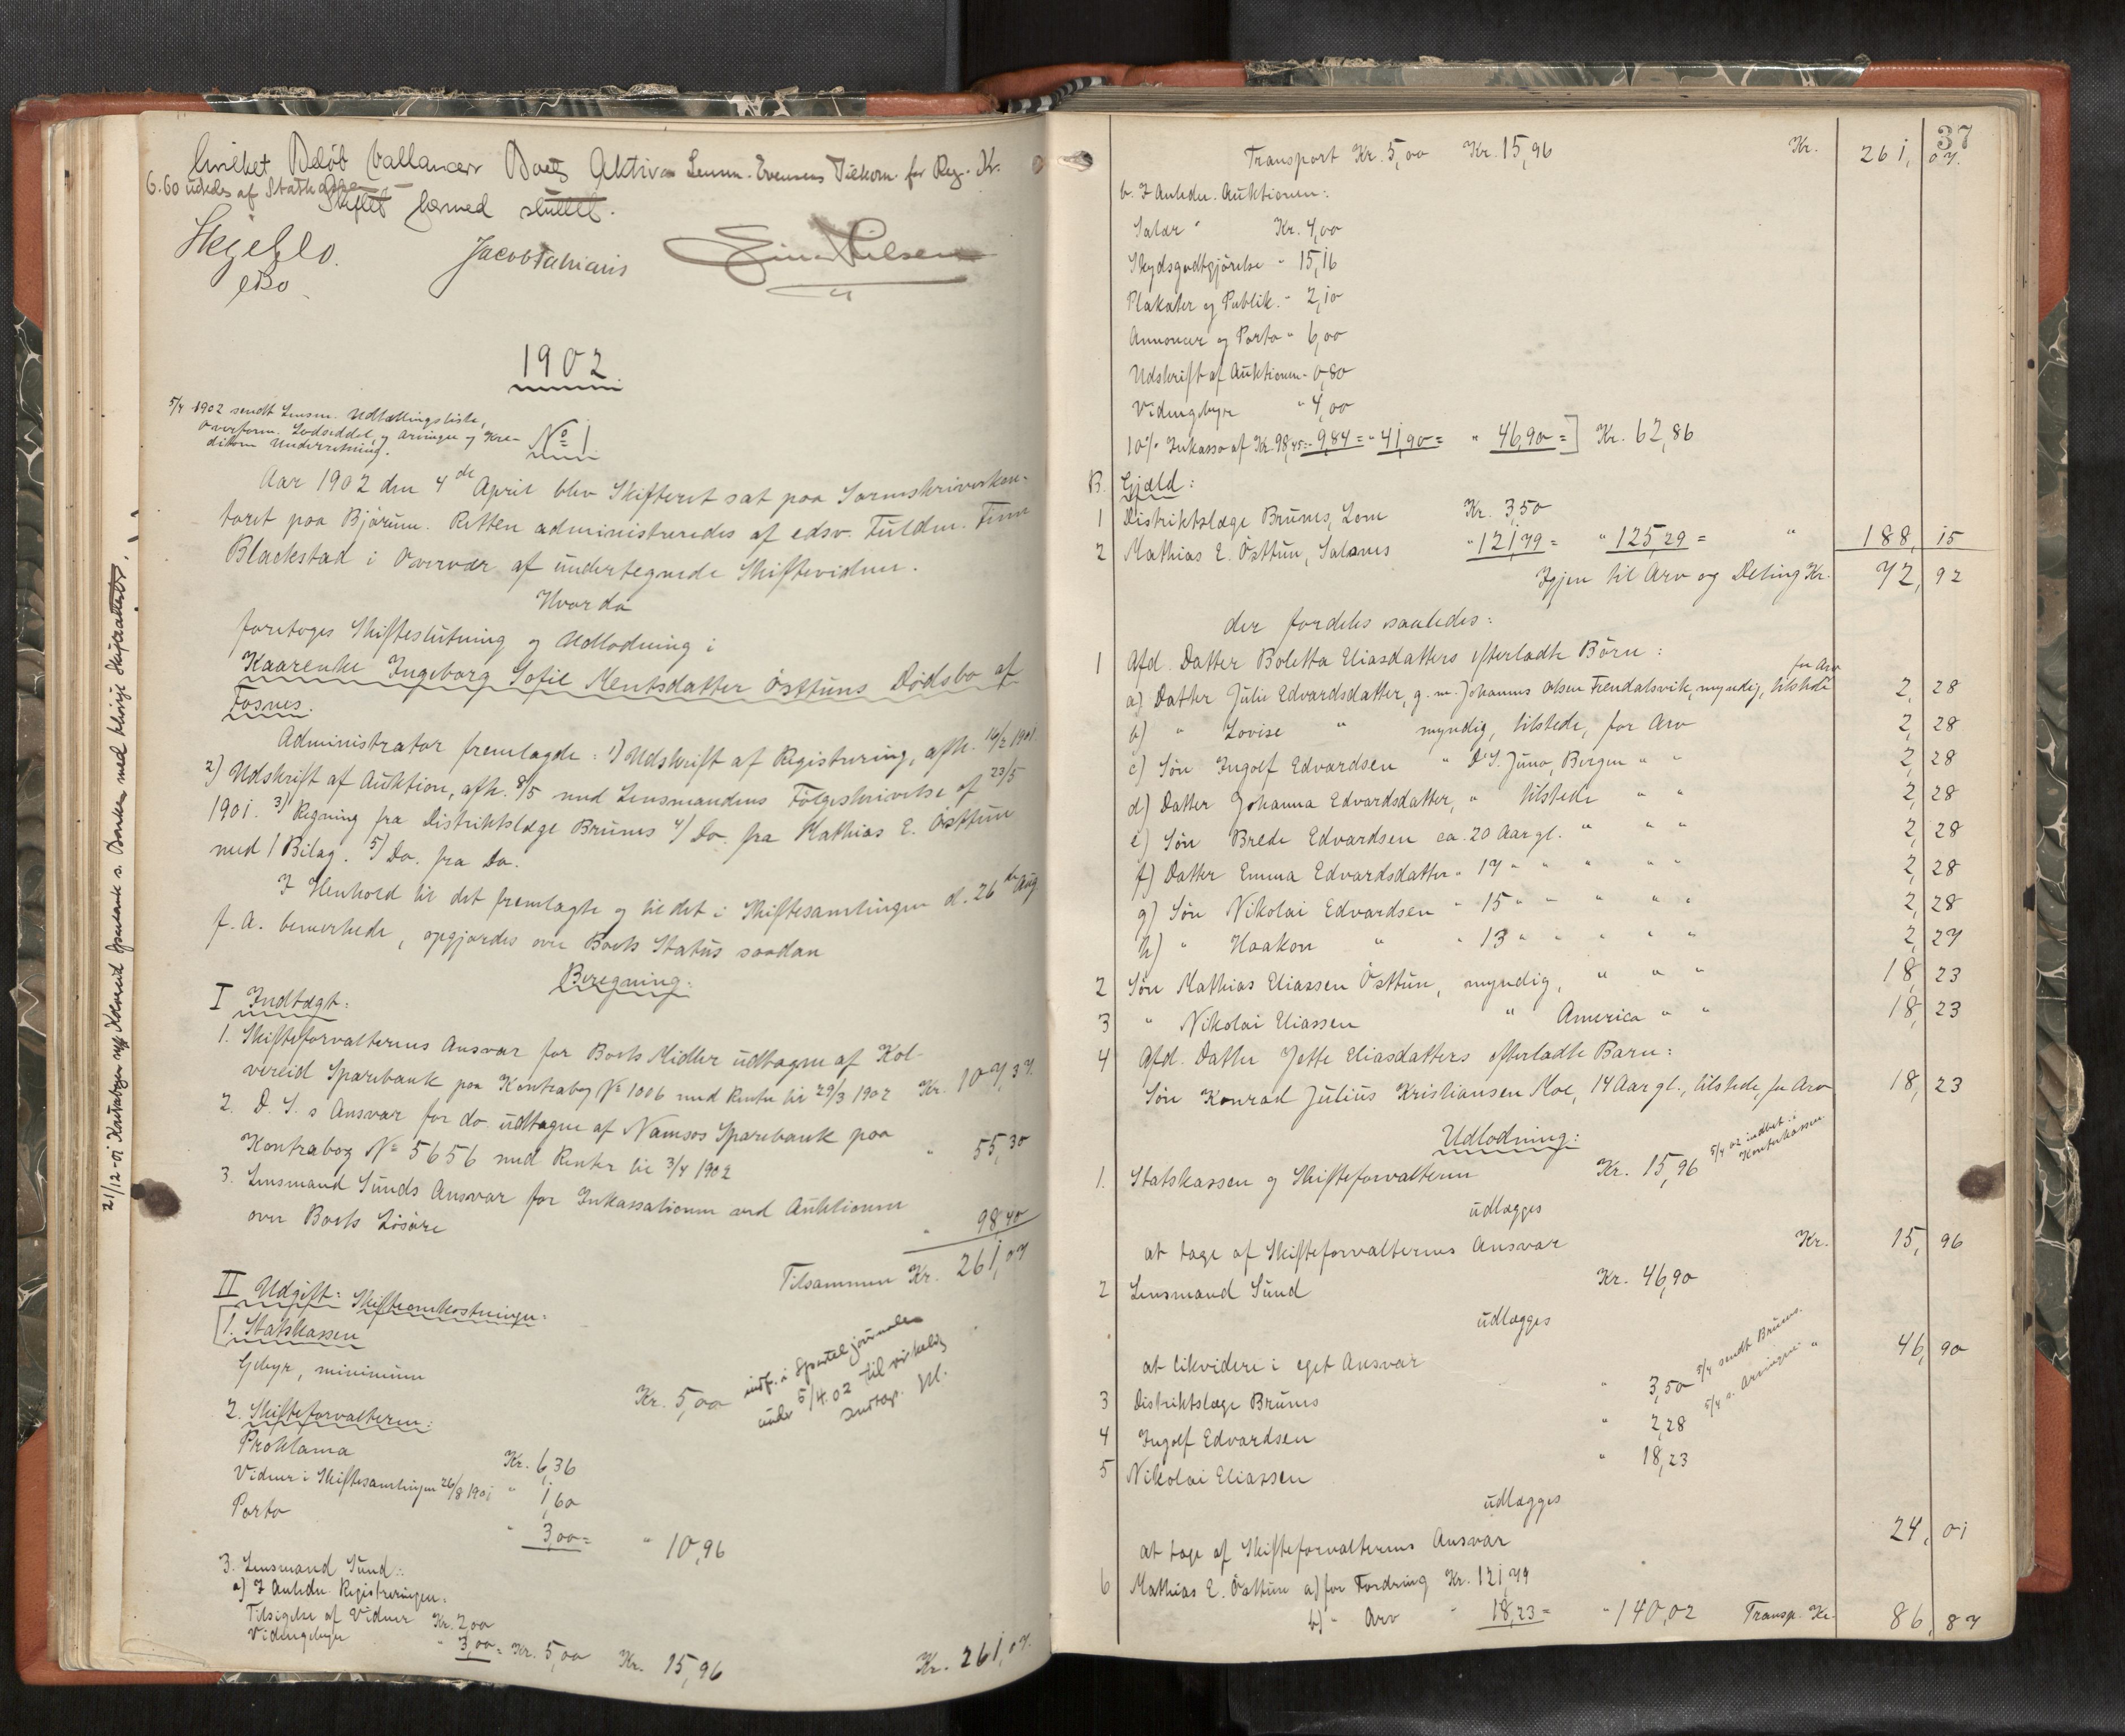 hvilket Beløb ballancerer Boets Aktiva Lensm. Evensens Tilkom. for Reg. Kr.
6.60 udredes af Statskassen
Skiftet hermed sluttet.
Jacob Fabiani Einar Nilsen
1902
5/4 1902 sendt Lensm. Udlægslingsliste,
Overform. Lodseddel, og Arvinger og Kre-
ditorer Underretning.
No 1
Aar 1902 den 4de April blev Skifteret sat paa Sorenskriverkon-
toret paa Bjørum. Retten administreredes af edsv. Fuldm. Finn
Blackstad i Overvær af undertegnede Skiftevidner.
Hvor da
foretoges Skifteslutning og Udlodning i
Kaarenke Ingeborg Sofie Mentsdatter Østtuns Dødsbo af
Fosnes.
Administrator fremlagde: 1) Udskrift af Registrering, afh. 16/2 1901.
2) Udskrift af Auktion, afh. 8/5 med Lensmandens Følgeskrivelse af 23/5
1901. 3) Regning fra Distriktslæge Bruns 4) Do. fra Mathias E. Østtun
med 1 Bilag. 5) Do. fra Do.
I Henhold til det fremlagte og til det i Skiftesamlingen d. 26de Aug.
f. A. bemerkede, opgjordes over Boets Status saadan
Beregning:
I Indtægt:
1. Skifteforvalterens Ansvar for Boets Midler udtagne af Kol-
vereid Sparebank paa Kontrabog No 1006 med Renter til 29/3 1902 Kr. 107,37.
2. D. S. s Ansvar for do. udtagne af Namsos Sparebank paa
Kontrabog No 5656 med Renter til 3/4 1902 " 55,30
3. Lensmand Sunds Ansvar for Inkassationen ved Auktionen
over Boets Løsøre " 98,40
Tilsammen Kr. 261,07
II Udgift: Skifteomkostninger:
1. Statskassen
Gebyr, minimum Kr. 5,00
indf. i Sportel journalen
under 5/4.02 til virkelig
Indtægt.
2. Skifteforvalteren:
Proklama Kr. 6,36
Vidner i Skiftesamlingen 26/8 1901 " 1,60
Porto " 3,00 = " 10,96
3. Lensmand Sund:
a) I Anledn. Registreringen:
Tilsigelse af Vidner Kr. 2,00
Vidnegebyr " 3,00 = Kr. 5,00 Kr. 15,96 Kr. 261,07.
21/12-01 Kontrabogen Kolvereid Sparebank s. Banken med
37
Transport Kr. 5,00 Kr. 15,96 Kr. 261,07.
b. I Anledn. Auktionen:
Salær " Kr. 4,00
Skydsgodtgjørelse " 15,16
Plakater og Publik. " 2,10
Annoncer og Porto " 6,00
Udskrift af Auktionen " 0,80
Vidnegebyr " 4,00
10% Inkasso af Kr. 98,45 = 9,84 = " 41,90 = " 46,90 = ] Kr. 62,86
B. Gjæld:
1 Distriktslæge Bruns, Lom Kr. 3,50
2 Mathias E. Østtun, Salsnes " 121,79 = " 125,29 = " 188,15
Igjen til Arv og Deling Kr. 72,92
der fordeles saaledes:
1 Afd. Datter Boletta Eliasdatters efterladte Børn:
a) Datter Julie Edvardsdatter, g. m. Johannes Olsen Trendalsvik, myndig, tilstede for Arv 2,28
b) " Lovise " myndig, tilstede, for Arv 2,28
c) Søn Ingolf Edvardsen " D/S. Juno, Bergen " " 2,28
d) Datter Johanna Edvardsdatter, " tilstede " " 2,28
e) Søn Brede Edvardsen ca. 20 Aar gl. " " " 2,28
f) Datter Emma Edvardsdatter " 17 " " " " " 2,28
g) Søn Nikolai Edvardsen " 15 " " " " " 2,28
h) " Haakon " " 13 " " " " " 2,27
2 Søn Mathias Eliassen Østtun, myndig, " " " 18,23
3 " Nikolai Eliassen " America " " 18,23
4 Afd. Datter Jette Eliasdatters efterladte Barn:
Søn Konrad Julius Kristiansen Moe, 14 Aar gl., tilstede, for Arv 18,23
Udlodning:
1. Statskassen og Skifteforvalteren Kr. 15,96 5/4 02 indbet. i Kontorkassen
udlægges
at tage af Skifteforvalterens Ansvar Kr. 15,96
2 Lensmand Sund Kr. 46,90
udlægges
at likvidere i eget Ansvar 46,90
3 Distriktslæge Bruns " 3,50 5/4 sendt Bruns.
4 Ingolf Edvardsen " 2,28 5/4 s. Arvingen "
5 Nikolai Eliassen " 18,23
udlægges
at tage af Skifteforvalterens Ansvar 24,01
6 Mathias E. Østtun a) for Fordring Kr. 121,79
b) " Arv " 18,23 = " 140,02 Transp. Kr. 86,87